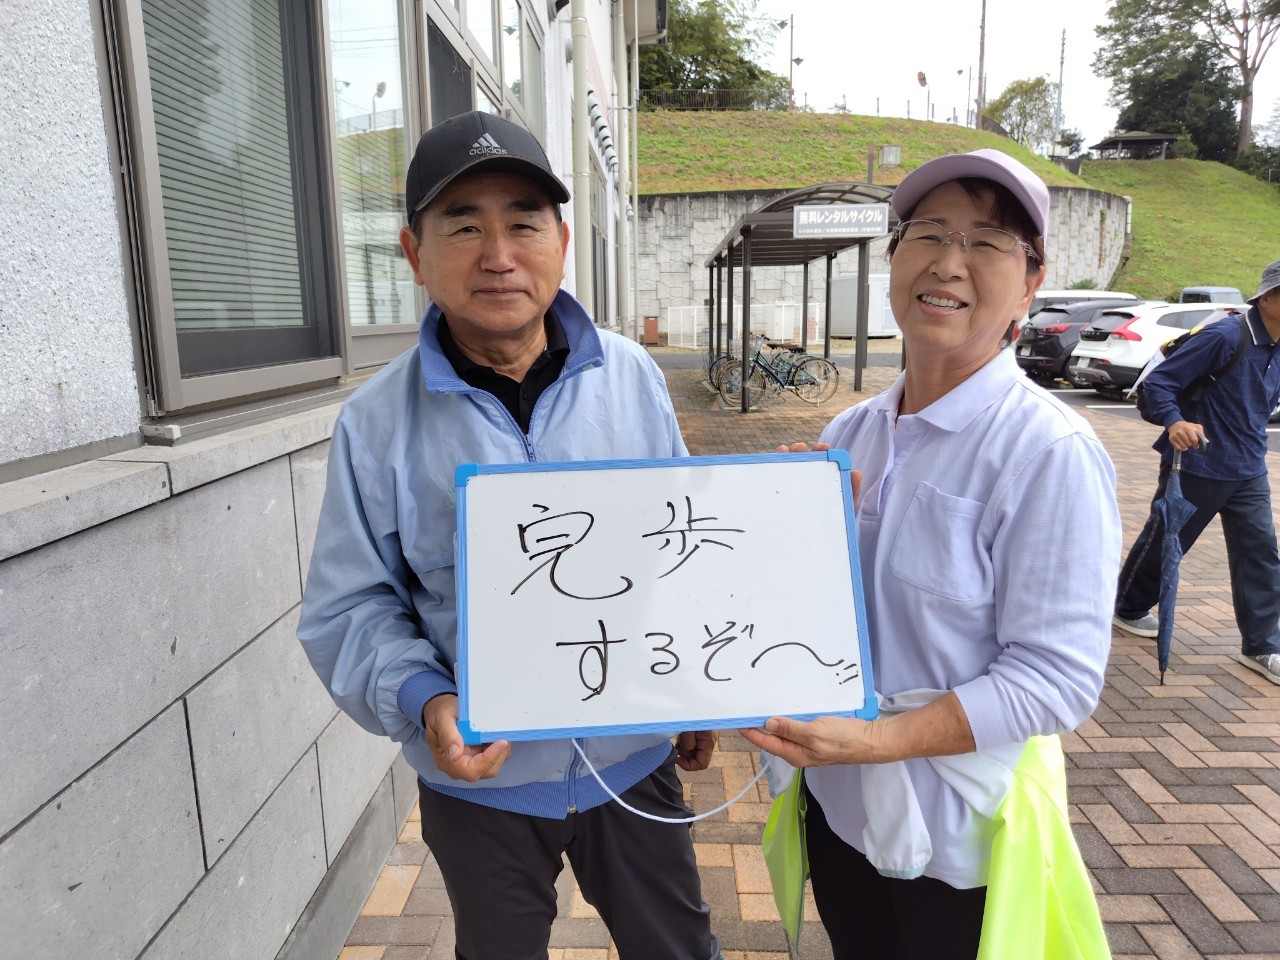 adidas
無料レンタルサイクル
完歩
するぞ〜!!